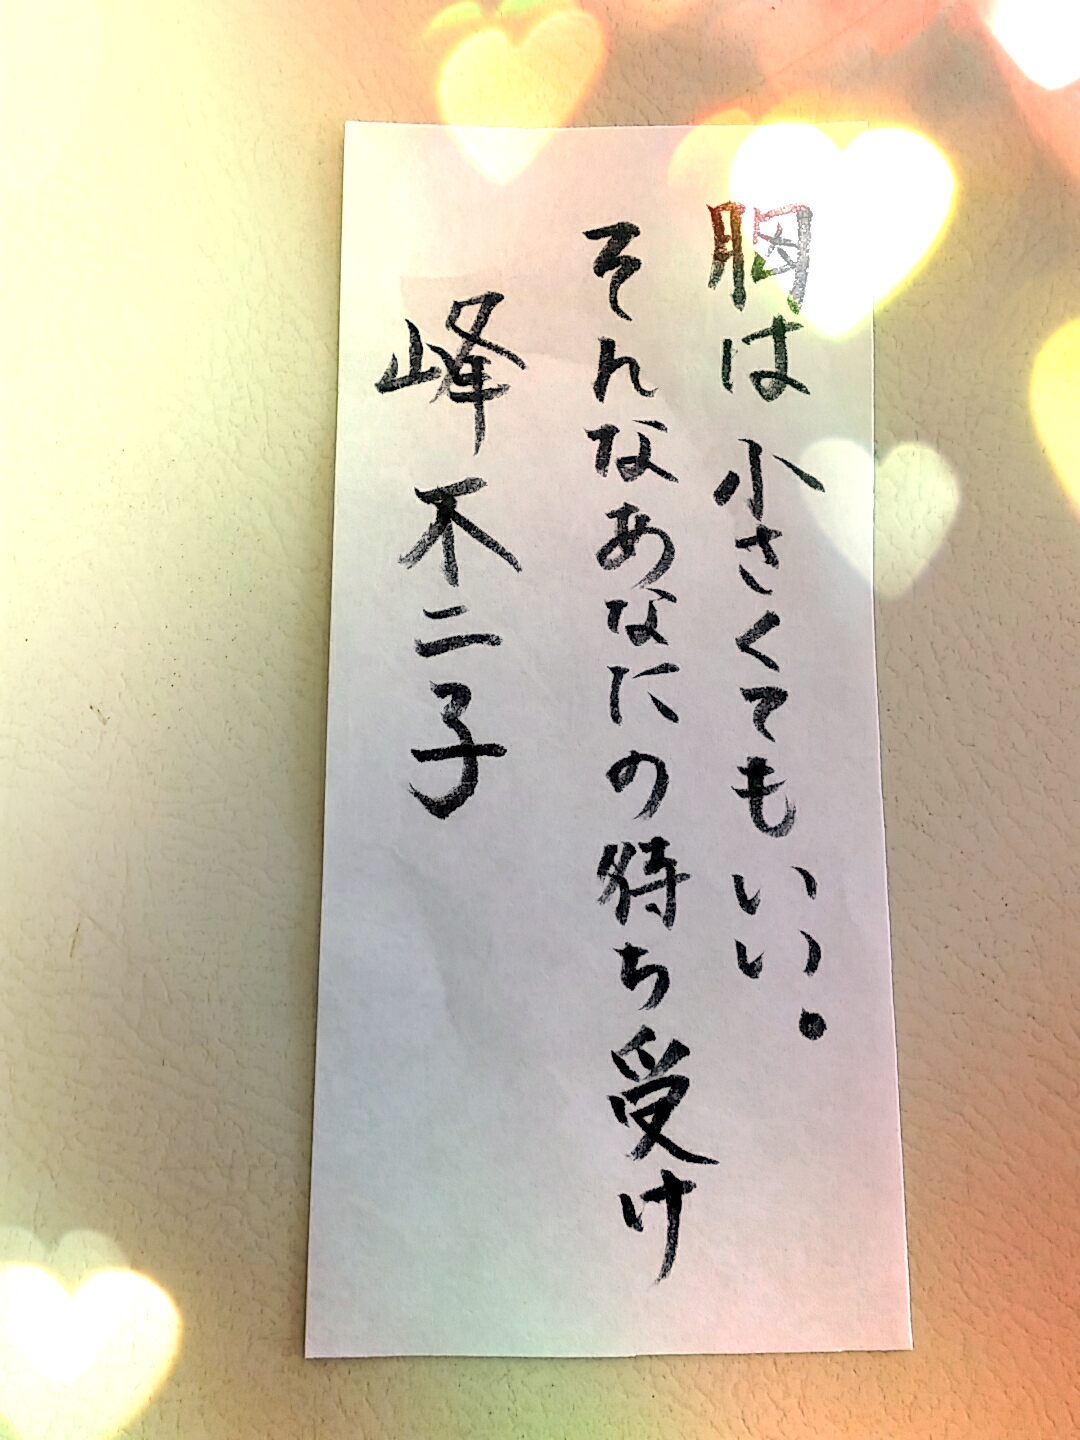 胸は小さくてもいい。
そんなあなたの待ち受け
峰不二子